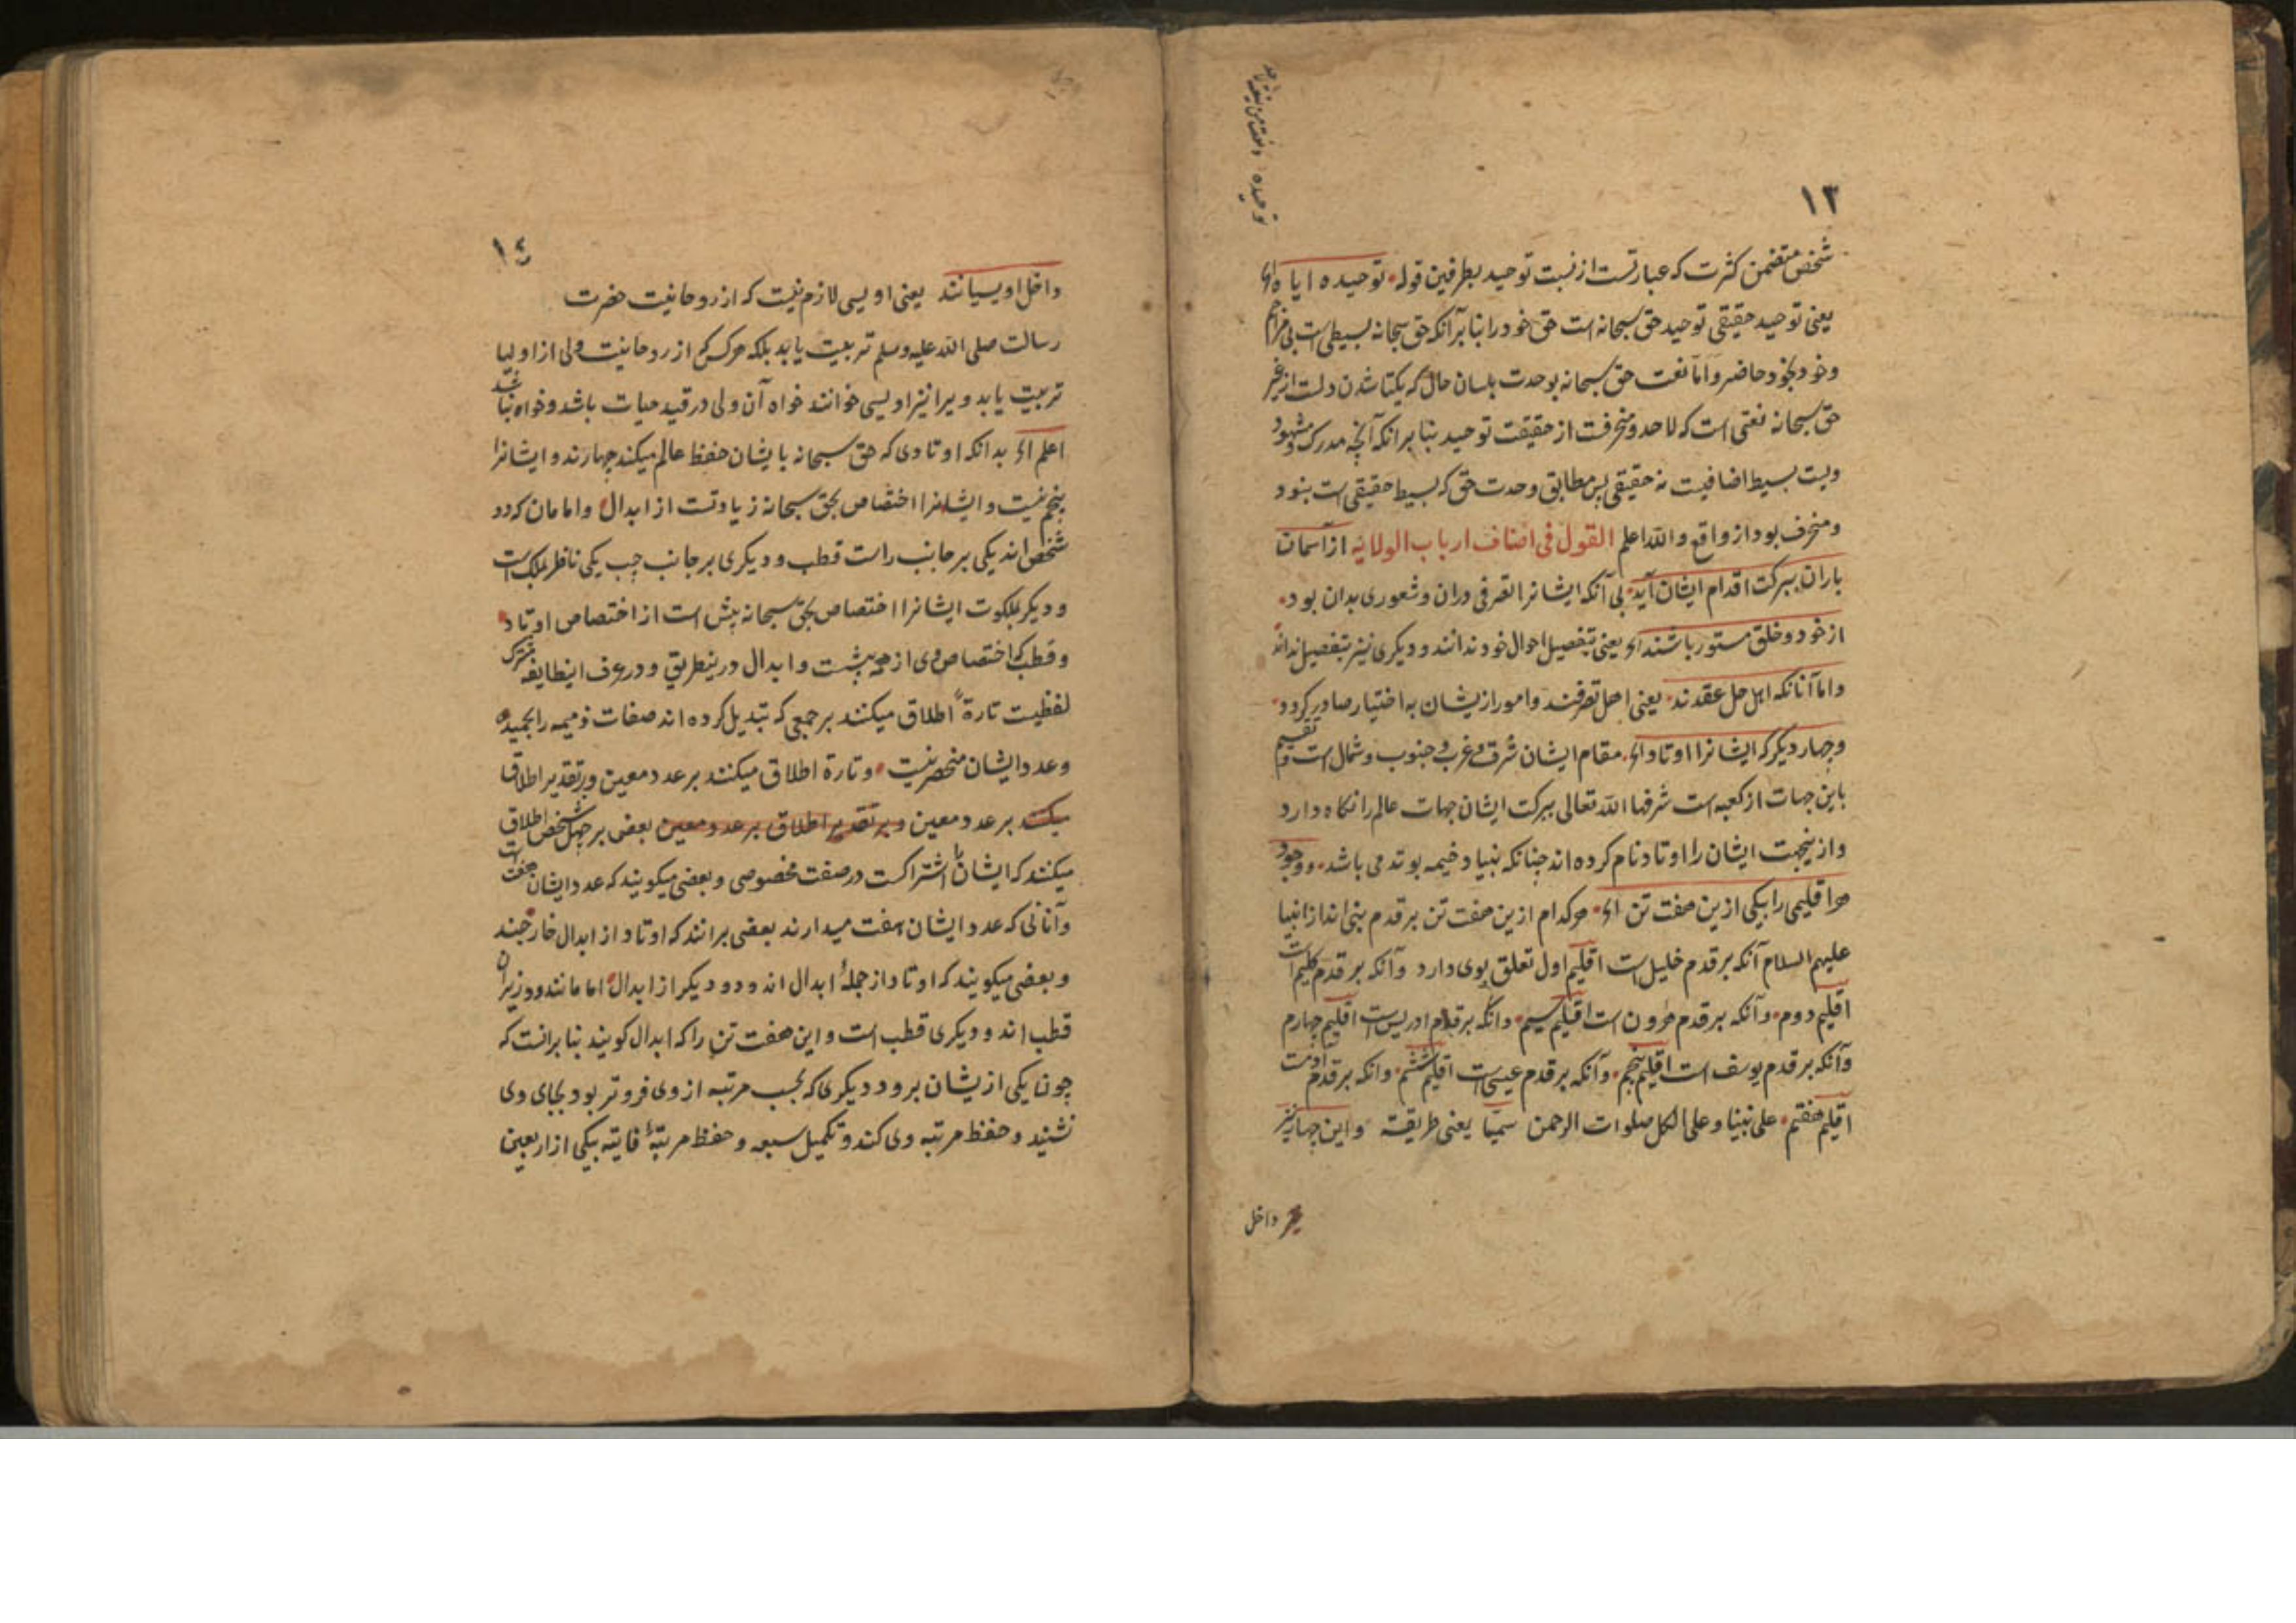 ١٣
شخص متضمن کثرت که عبارتست از نسبت توحید بطرفین قوله توحیده ایاه ای
یعنی توحید حقیقی توحید حق سبحانه است حق خود را بنا بر آنکه حق سبحانه بسیطی است بی مزاحم
وخود بخود حاضر واما نعت حق سبحانه بوحدت بلسان حال که یکتا شدن دلست از غیر
حق سبحانه نعتی است که لاحد ومنحرفست از حقیقت توحید بنا بر انکه آنچه مدرک ومشهود
ویست بسیط اضافیست نه حقیقی پس مطابق وحدت حق که بسیط حقیقی است بنود
ومنحرف بود از واقع والله اعلم القول فی اصناف ارباب الولایه از آسمان
باران ببرکت اقدام ایشان آید بی آنکه ایشانرا تصرفی دران وشعوری بدان بود
از خود وخلق مستور باشند ای یعنی بتفصیل احوال خود ندانند و دیکری نیز بتفصیل نداند
واما آنانکه اهل حل عقدند یعنی اهل تصرفند وامور ازیشان به اختیار صادر کردد
وچهار دیکر که ایشانرا اوتاد ای مقام ایشان شرق وغرب وجنوب وشمال است تقسیم
باین جهات از کعبه است شرفها الله تعالی ببرکت ایشان جهات عالم را نکاه دارد
وازینجهت ایشان را اوتاد نام کرده اند چنانکه بنیاد خیمه بوتد می باشد ووجود
هر اقلیمی را بیکی ازین هفت تن ای هرکدام ازین هفت تن بر قدم بنی اند از انبیا
علیهم السلام آنکه بر قدم خلیل است اقلیم اول تعلق بوی دارد وآنکه بر قدم کلیم است
اقلیم دوم وآنکه بر قدم هرون است اقلیم سیم وانکه بر قدم ادریس است اقلیم چهارم
وآنکه بر قدم یوسف است اقلیم پنجم وآنکه بر قدم عیسی است اقلیم ششم وانکه بر قدم آدمست
اقلیم هفتم علی نبینا وعلی الکل صلوات الرحمن سمیا یعنی طریقته واین چهار نیز
داخل
١٤
داخل اویسیانند یعنی اویسی لازم نیست که از روحانیت حضرت
رسالت صلی الله علیه وسلم تربیت یابد بلکه هرکس که از روحانیت ولی از اولیا
تربیت یابد ویرا نیز اویسی خوانند خواه آن ولی در قید حیات باشد وخواه نباشد
اعلم ای بدانکه اوتادی که حق سبحانه بایشان حفظ عالم میکند چهارند و ایشانرا
پنجم نیست وایشانرا اختصاص بحق سبحانه زیادتست از ابدال وامامان که دو
شخص اند یکی بر جانب راست قطب ودیکری بر جانب چپ یکی ناظر بملک است
ودیکر بملکوت ایشانرا اختصاص بحق سبحانه بیش است از اختصاص اوتاد
وقطب که اختصاص وی از همه بیشست وابدال درینطریق ودر عرف اینطایفه مشترک
لفظیست تارة اطلاق میکنند بر جمعی که تبدیل کرده اند صفات ذمیمه را بحمیده
وعدد ایشان منحصر نیست وتارة اطلاق میکنند بر عدد معین وبرتقدیر اطلاق
میکنند بر عدد معین وبر تقدیر اطلاق بر عدد معین بعض بر چهل شخص اطلاق
میکنند که ایشانرا اشتراکست در صفت مخصوصی وبعضی میکویند که عدد ایشان هفت است
وآنانی که عدد ایشان هفت میدارند بعضی برانند که اوتاد از ابدال خارجند
وبعضی میکویند که اوتاد از جملۀ ابدال اند ودو دیکر از ابدال امامانند ووزیران
قطب اند ودیکری قطب است واین هفت تن را که ابدال کویند بنا برانست که
چون یکی ازیشان برود دیکری که بحسب مرتبه از وی فروتر بود بجای وی
نشیند وحفظ مرتبه وی کند وتکمیل سبعه وحفظ مرتبۀ فایته بیکی از اربعین